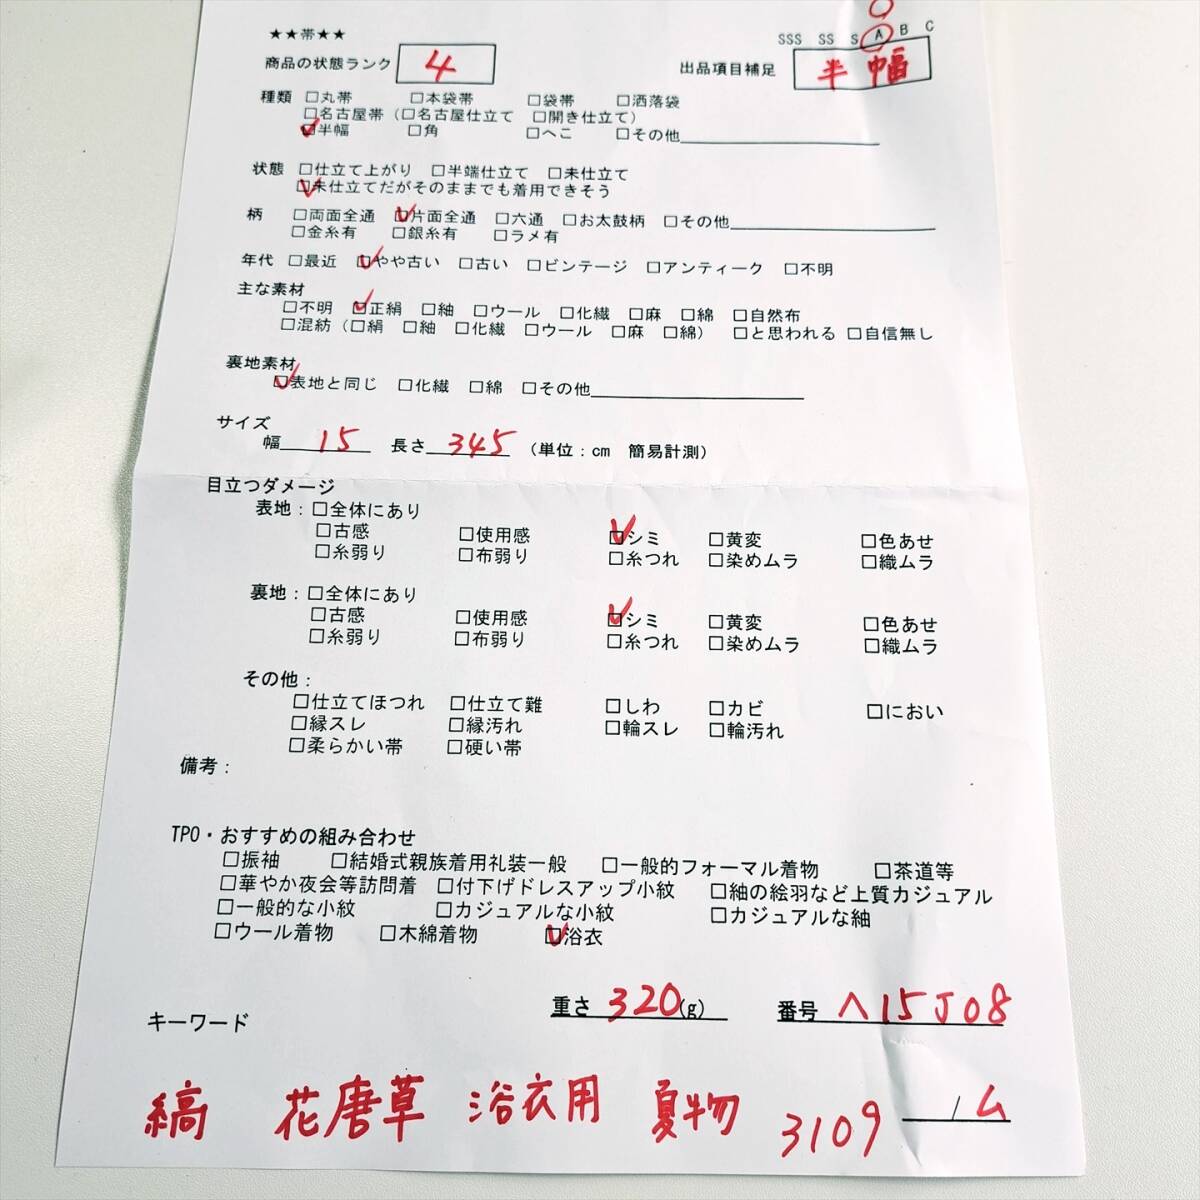 ★★帯★★
SSS SS S A B C
商品の状態ランク 4 出品項目補足 半幅
種類 □丸帯 □本袋帯 □袋帯 □洒落袋
□名古屋帯（□名古屋仕立て □開き仕立て）
☑半幅 □角 □へこ □その他
状態 □仕立て上がり □半端仕立て □未仕立て
☑未仕立てだがそのままでも着用できそう
柄 □両面全通 ☑片面全通 □六通 □お太鼓柄 □その他
□金糸有 □銀糸有 □ラメ有
年代 □最近 ☑やや古い □古い □ビンテージ □アンティーク □不明
主な素材
□不明 ☑正絹 □紬 □ウール □化繊 □麻 □綿 □自然布
□混紡（□絹 □紬 □化繊 □ウール □麻 □綿） □と思われる □自信無し
裏地素材
☑表地と同じ □化繊 □綿 □その他
サイズ
幅 15 長さ 345 （単位：cm 簡易計測）
目立つダメージ
表地：□全体にあり
□古感 □使用感 ☑シミ □黄変 □色あせ
□糸弱り □布弱り □糸つれ □染めムラ □織ムラ
裏地：□全体にあり
□古感 □使用感 ☑シミ □黄変 □色あせ
□糸弱り □布弱り □糸つれ □染めムラ □織ムラ
その他：
□仕立てほつれ □仕立て難 □しわ □カビ □におい
□縁スレ □縁汚れ □輪スレ □輪汚れ
□柔らかい帯 □硬い帯
備考：
TPO・おすすめの組み合わせ
□振袖 □結婚式親族着用礼装一般 □一般的フォーマル着物 □茶道等
□華やか夜会等訪問着 □付下げドレスアップ小紋 □紬の絵羽など上質カジュアル
□一般的な小紋 □カジュアルな小紋 □カジュアルな紬
□ウール着物 □木綿着物 ☑浴衣
重さ 320(g) 番号 へ15J08
キーワード
縞 花唐草 浴衣用 夏物 3109 /ム